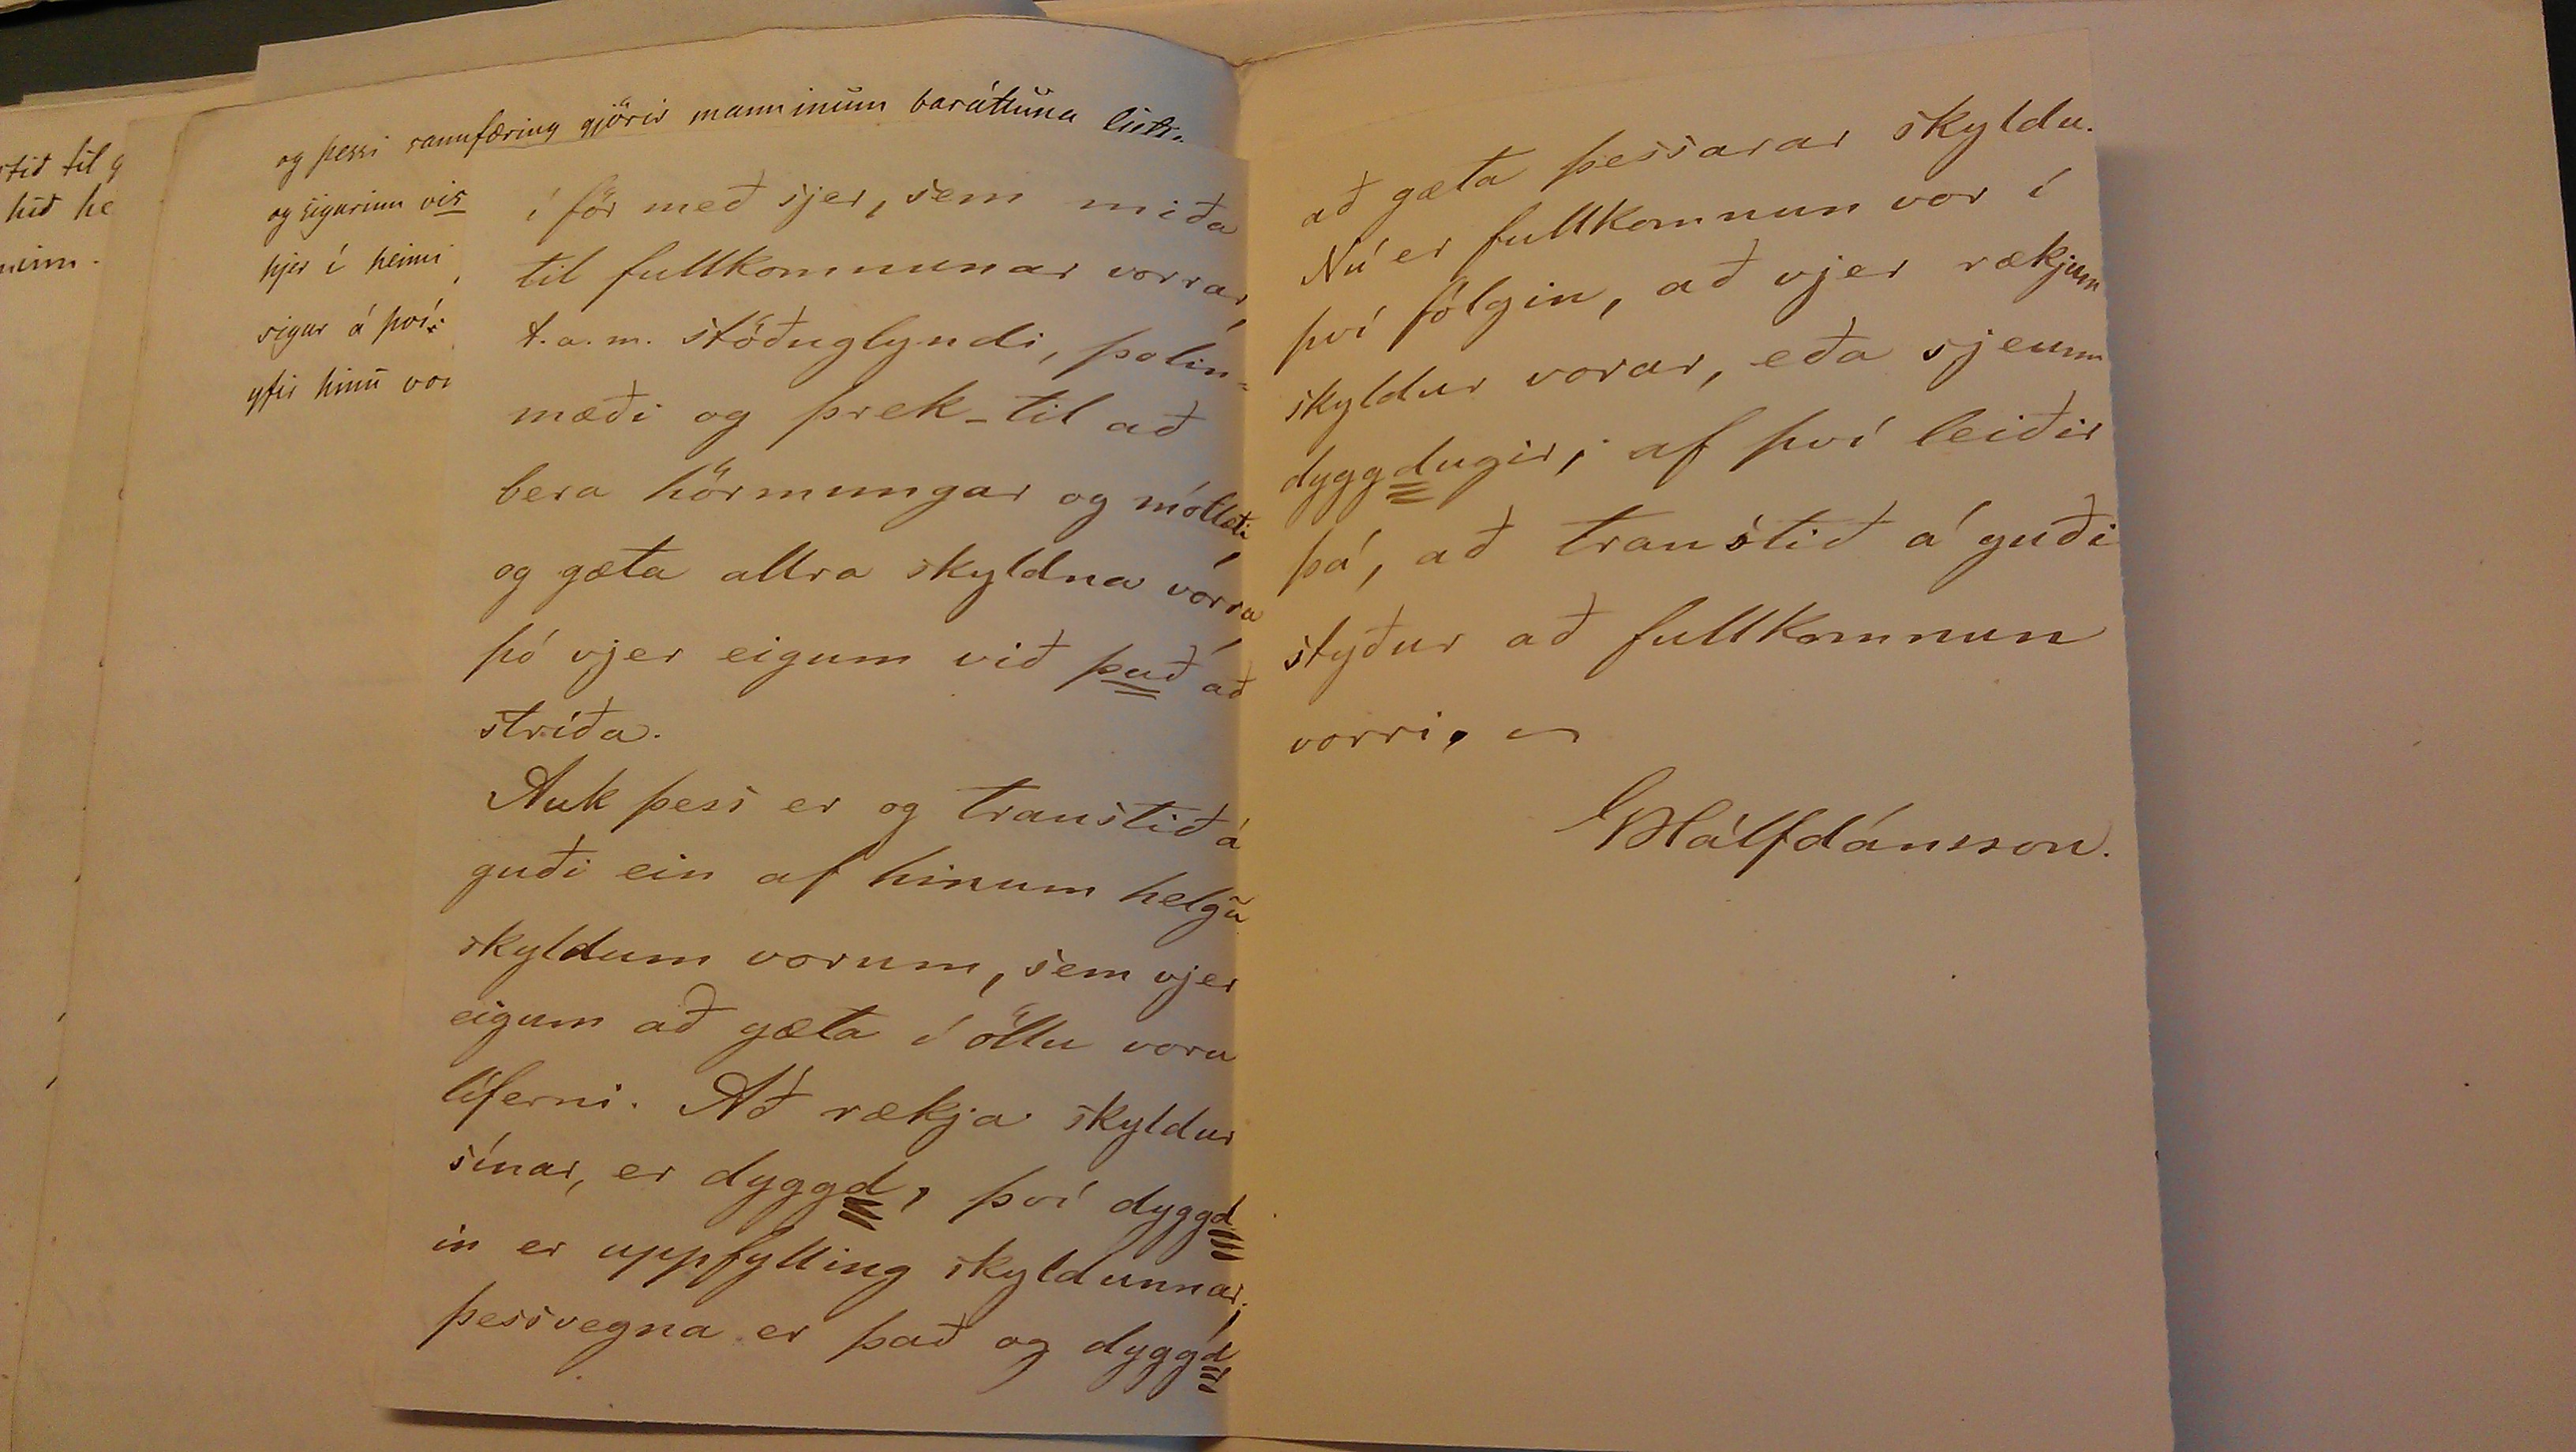 stið til g
hið he
og þessi sannfæring gjörir manninum baráttuna
og sigurinn vis
hjer í heimi
sigur á því
yfir hinu vor
í för með sjer, sem miða
til fullkomnunar vorrar,
t.a.m. stöðuglyndi, þolin-
mæði og þrek - til að
bera hörmungar og mótlæti
og gæta allra skyldna vorra
þó vjer eigum við það að
stríða.
Auk þess er og traustið á
guði ein af hinum helgu
skyldum vorum, sem vjer
eigum að gæta í öllu voru
líferni. Að rækja skyldur
sínar, er dyggd, því dyggd
in er uppfylling skyldunnar;
þessvegna er það og dyggd
að gæta þessarar skyldu.
Nú er fullkomnun vor í
því fólgin, að vjer rækjum
skyldur vorar, eða sjeum
dyggdugir; af því leiðir
þá, að traustið á guði
styður að fullkomnun
vorri.
Hálfdánsson.